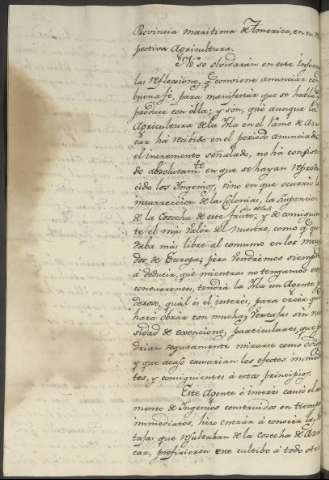 Provincia maritima de America, en su res
pectiva Agricultura.
No se olvidarán en este Informe
las reflexiones, q.e conviene anunciar con
buena fé, para manifestar que se habla, y
produce con ella; y son, que aunque la
Agricultura de la Isla en el Ramo de Azu
car há recibido en el periodo anunciado
el incremento señalado, no há consisti
do absolutam.te en que se hayan
los Ingenios, sino en que ocurrió la
insurreccion de las Colonias, la
de la Cosecha de este fruto, y de consiguien
te el más valor del nuestro, como q.e que
daba más libre al consumo en los merca
dos de Europa; pero vendremos siempre
á deducir, que mientras no tengamos
concurrentes, tendrá la Isla un Agente po
deroso, qual és el interés, para creer que
hará obrar con muchas ventajas sin nece
sidad de exenciones particulares, que po
drian seguramente mirarse como
y que acaso causarian los efectos inmedia
tos, y consiguientes á estos principios.
Este Agente ó interés causó el au
mento de Ingenios construidos en tiempos
inmediatos, hizo entrar á conocer las ven
tajas que resultaban de la cosecha de Azu
car, prefiriesen este cultibo á todo otro